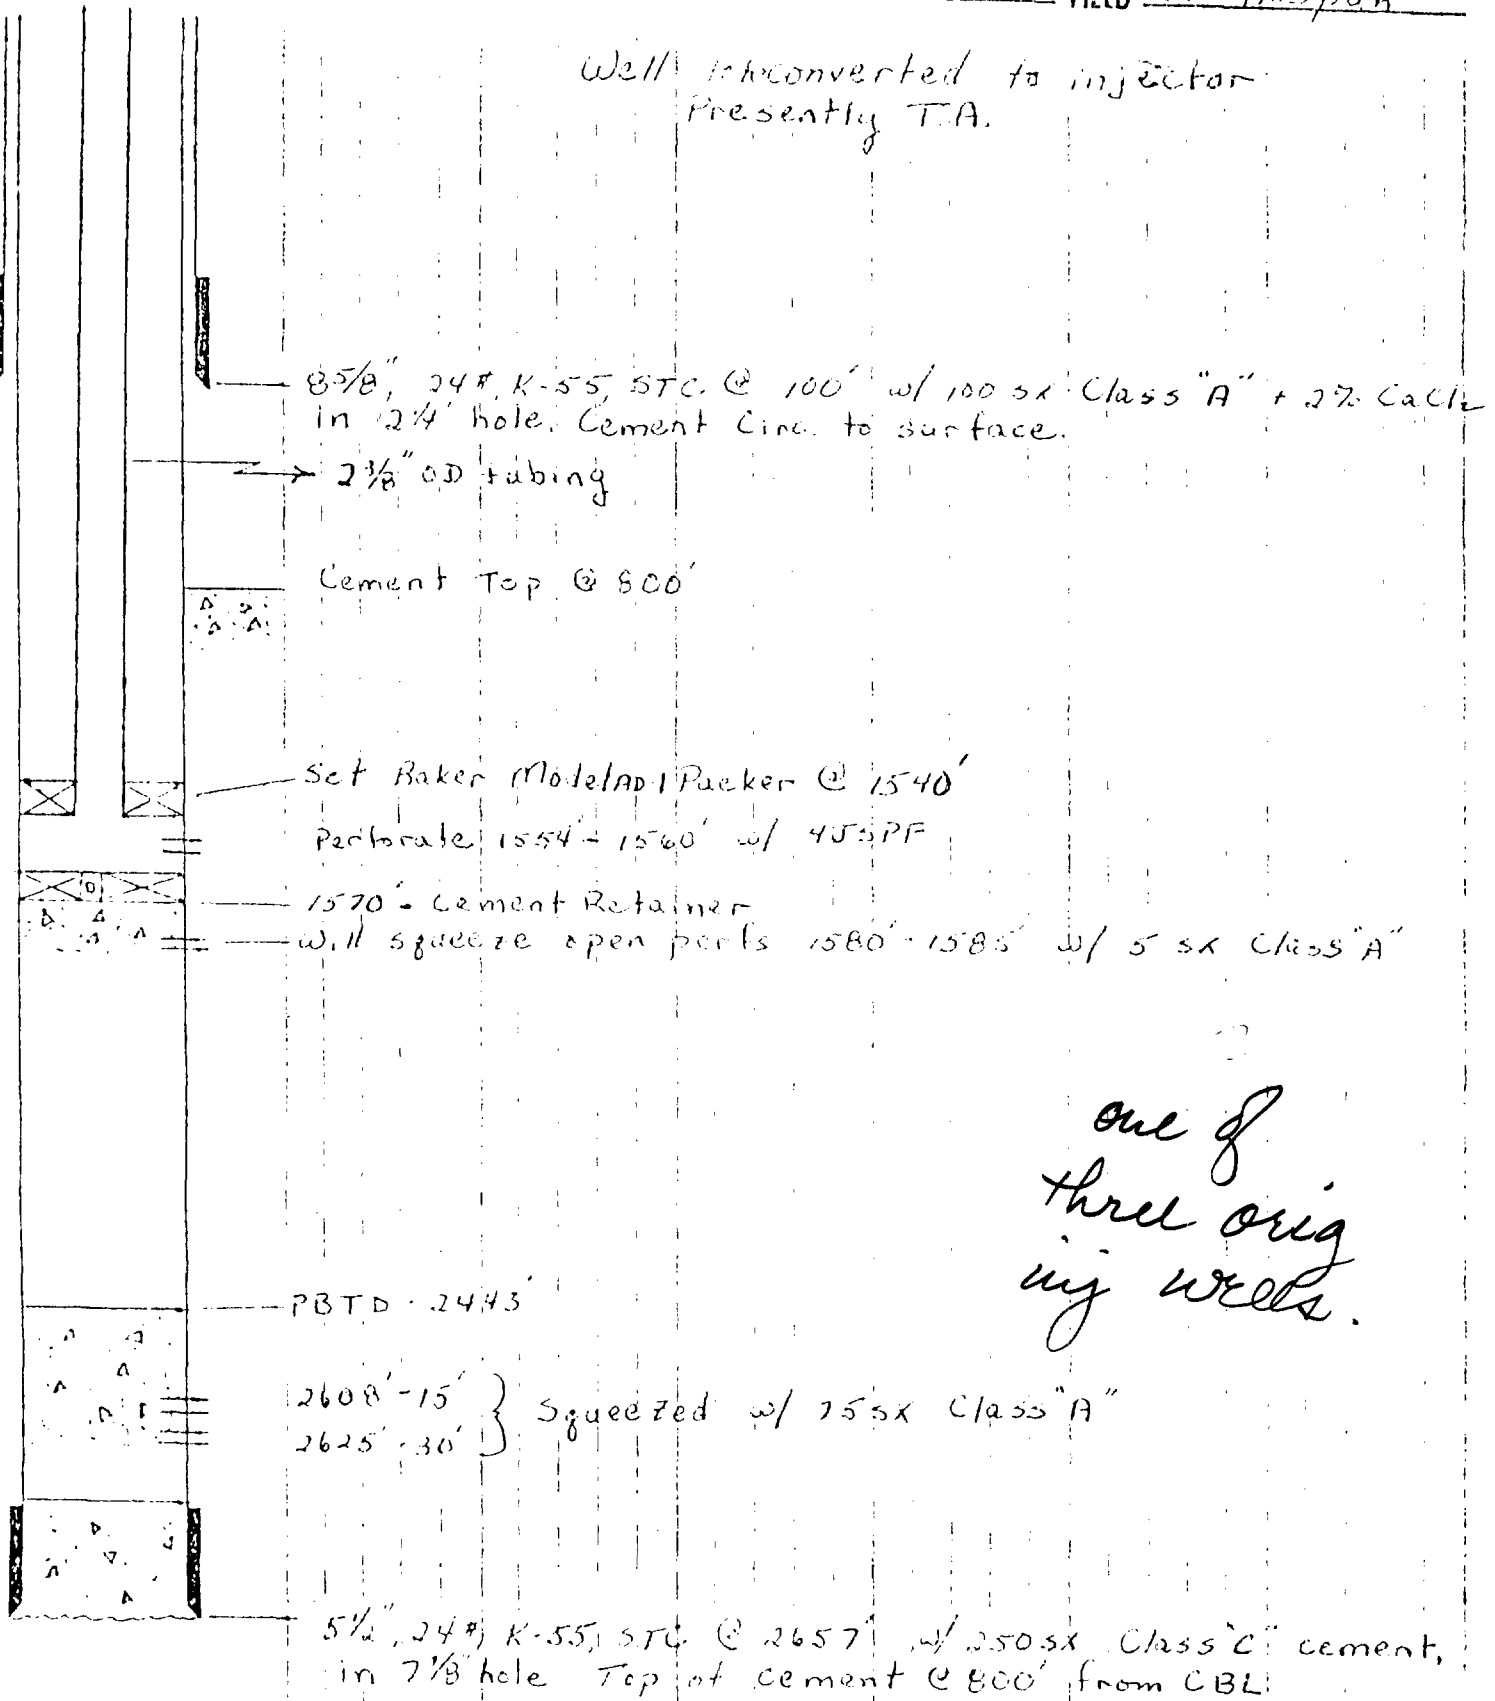 FIELD
Well to be converted to injector
Presently T.A.
8 5/8", 24#, K-55, STC. @ 100' w/ 100 sx Class "A" + 2% CaCl2
in 12 1/4" hole. Cement Circ. to surface.
2 3/8" OD tubing
Cement Top @ 800'
Set Baker Model AD1 Packer @ 1540'
Perforate 1554'-1560' w/ 4JSPF
1570' - Cement Retainer
Will squeeze open perfs 1580'-1585' w/ 5 sx Class "A"
one of
three orig
inj wells.
PBTD - 2443'
2608'-15'
2625'-30'
Squeezed w/ 75 sx Class "A"
5 1/2", 24#, K-55, STC @ 2657' w/ 250 sx Class "C" cement,
in 7 7/8" hole Top of cement @ 800' from CBL.